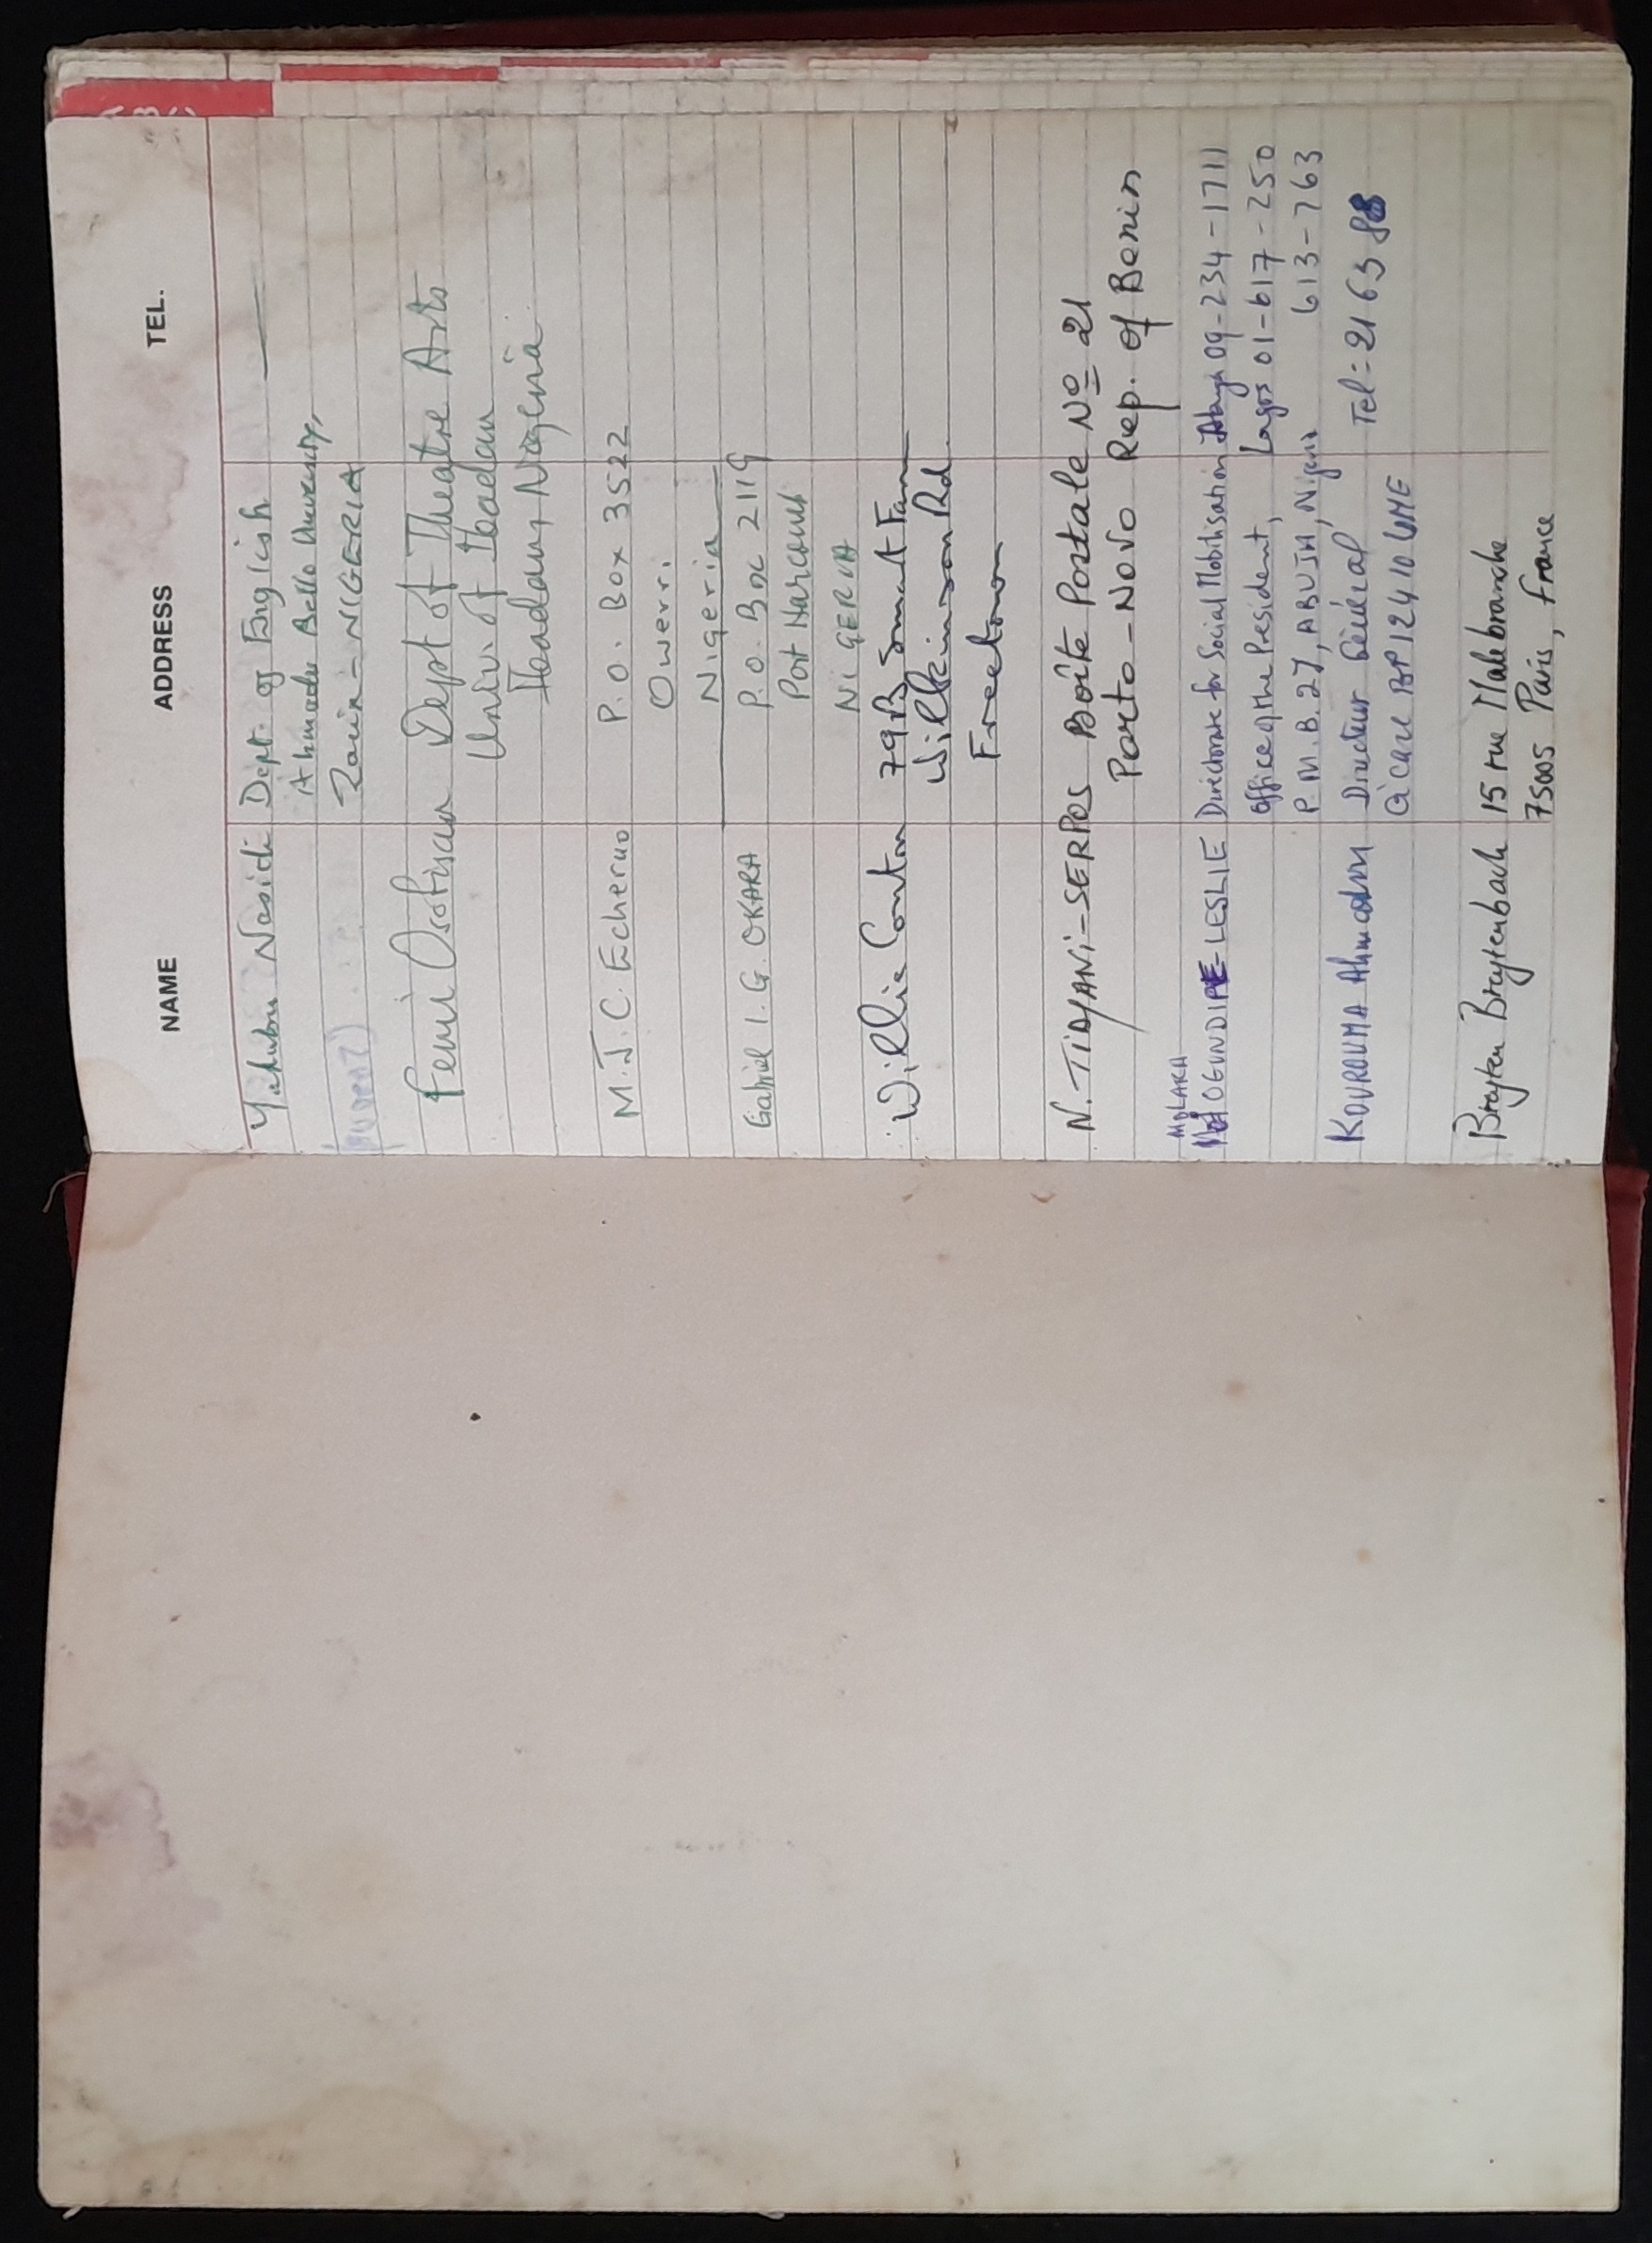 NAME ADDRESS TEL.
Yakubu Nasidi Dept. of English
Ahmadu Bello University,
Zaria - NIGERIA
Femi Osofisan Dept of Theatre Arts
Univ. of Ibadan
Ibadan, Nigeria.
M.J.C. Echeruo P.O. Box 3522
Owerri
Nigeria
Gabriel I. G. OKARA P.O. Box 2119
Port Harcourt
NIGERIA
Willie Conton 79B
Wilkinson Rd.
Freetown
N. TIDJANI-SERPOS Boîte Postale Nº 21
Porto-Novo Rep. of Benin
MOLARA
OGUNDIPE-LESLIE Directorate for Social Mobilisation Abuja 09-234-1711
Office of the President, Lagos 01-617-250
P.M.B. 27, ABUJA, Nigeria 613-763
KOUROUMA Ahmadou Directeur Général Tel = 21 63 88
Cicare BP 12410 LOME
Breyten Breytenbach 15 rue Malebranche
75005 Paris, France